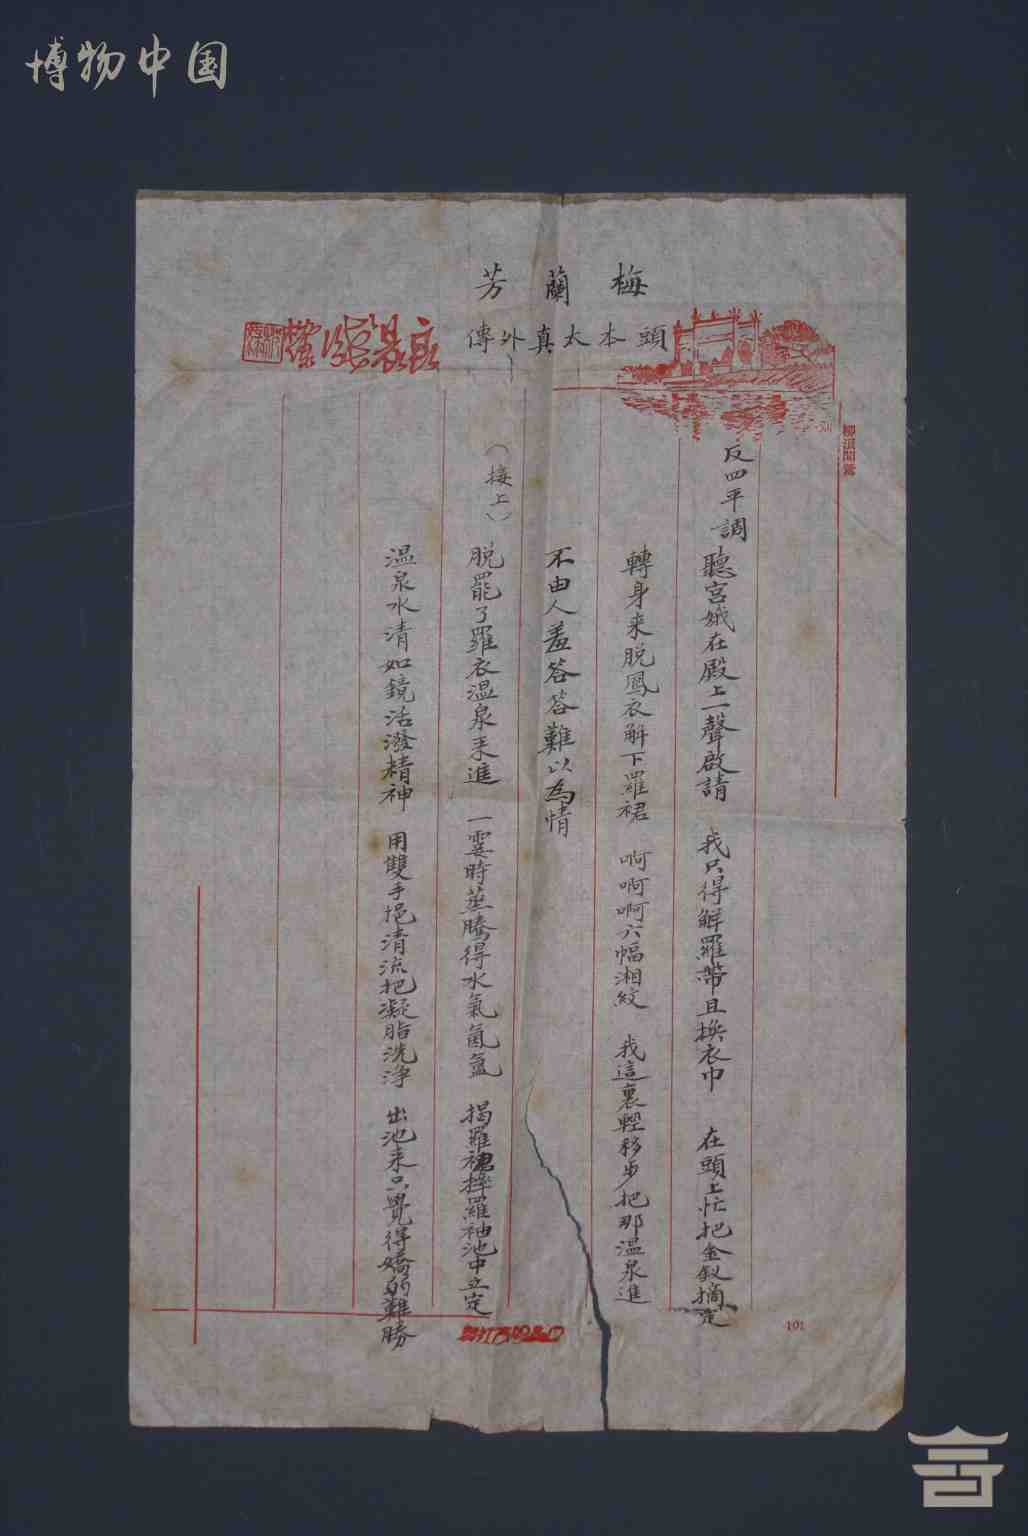 博物中国
梅蘭芳
頭本太真外傳
柳浪聞鶯
反四平調
聽宮娥在殿上一聲啟請 我只得解羅帶且換衣巾 在頭上忙把金釵摘定
轉身來脫鳳衣解下羅裙 啊啊啊六幅湘紋 我這裏輕移步把那溫泉進
不由人羞答答難以為情
(接上)
脫罷了羅衣溫泉來進 一霎時蒸騰得水氣氤氳 揭羅裙摔羅袖池中立定
温泉水清如鏡活潑精神 用雙手挹清流把凝脂洗淨 出池來只覺得嬌弱難勝
101